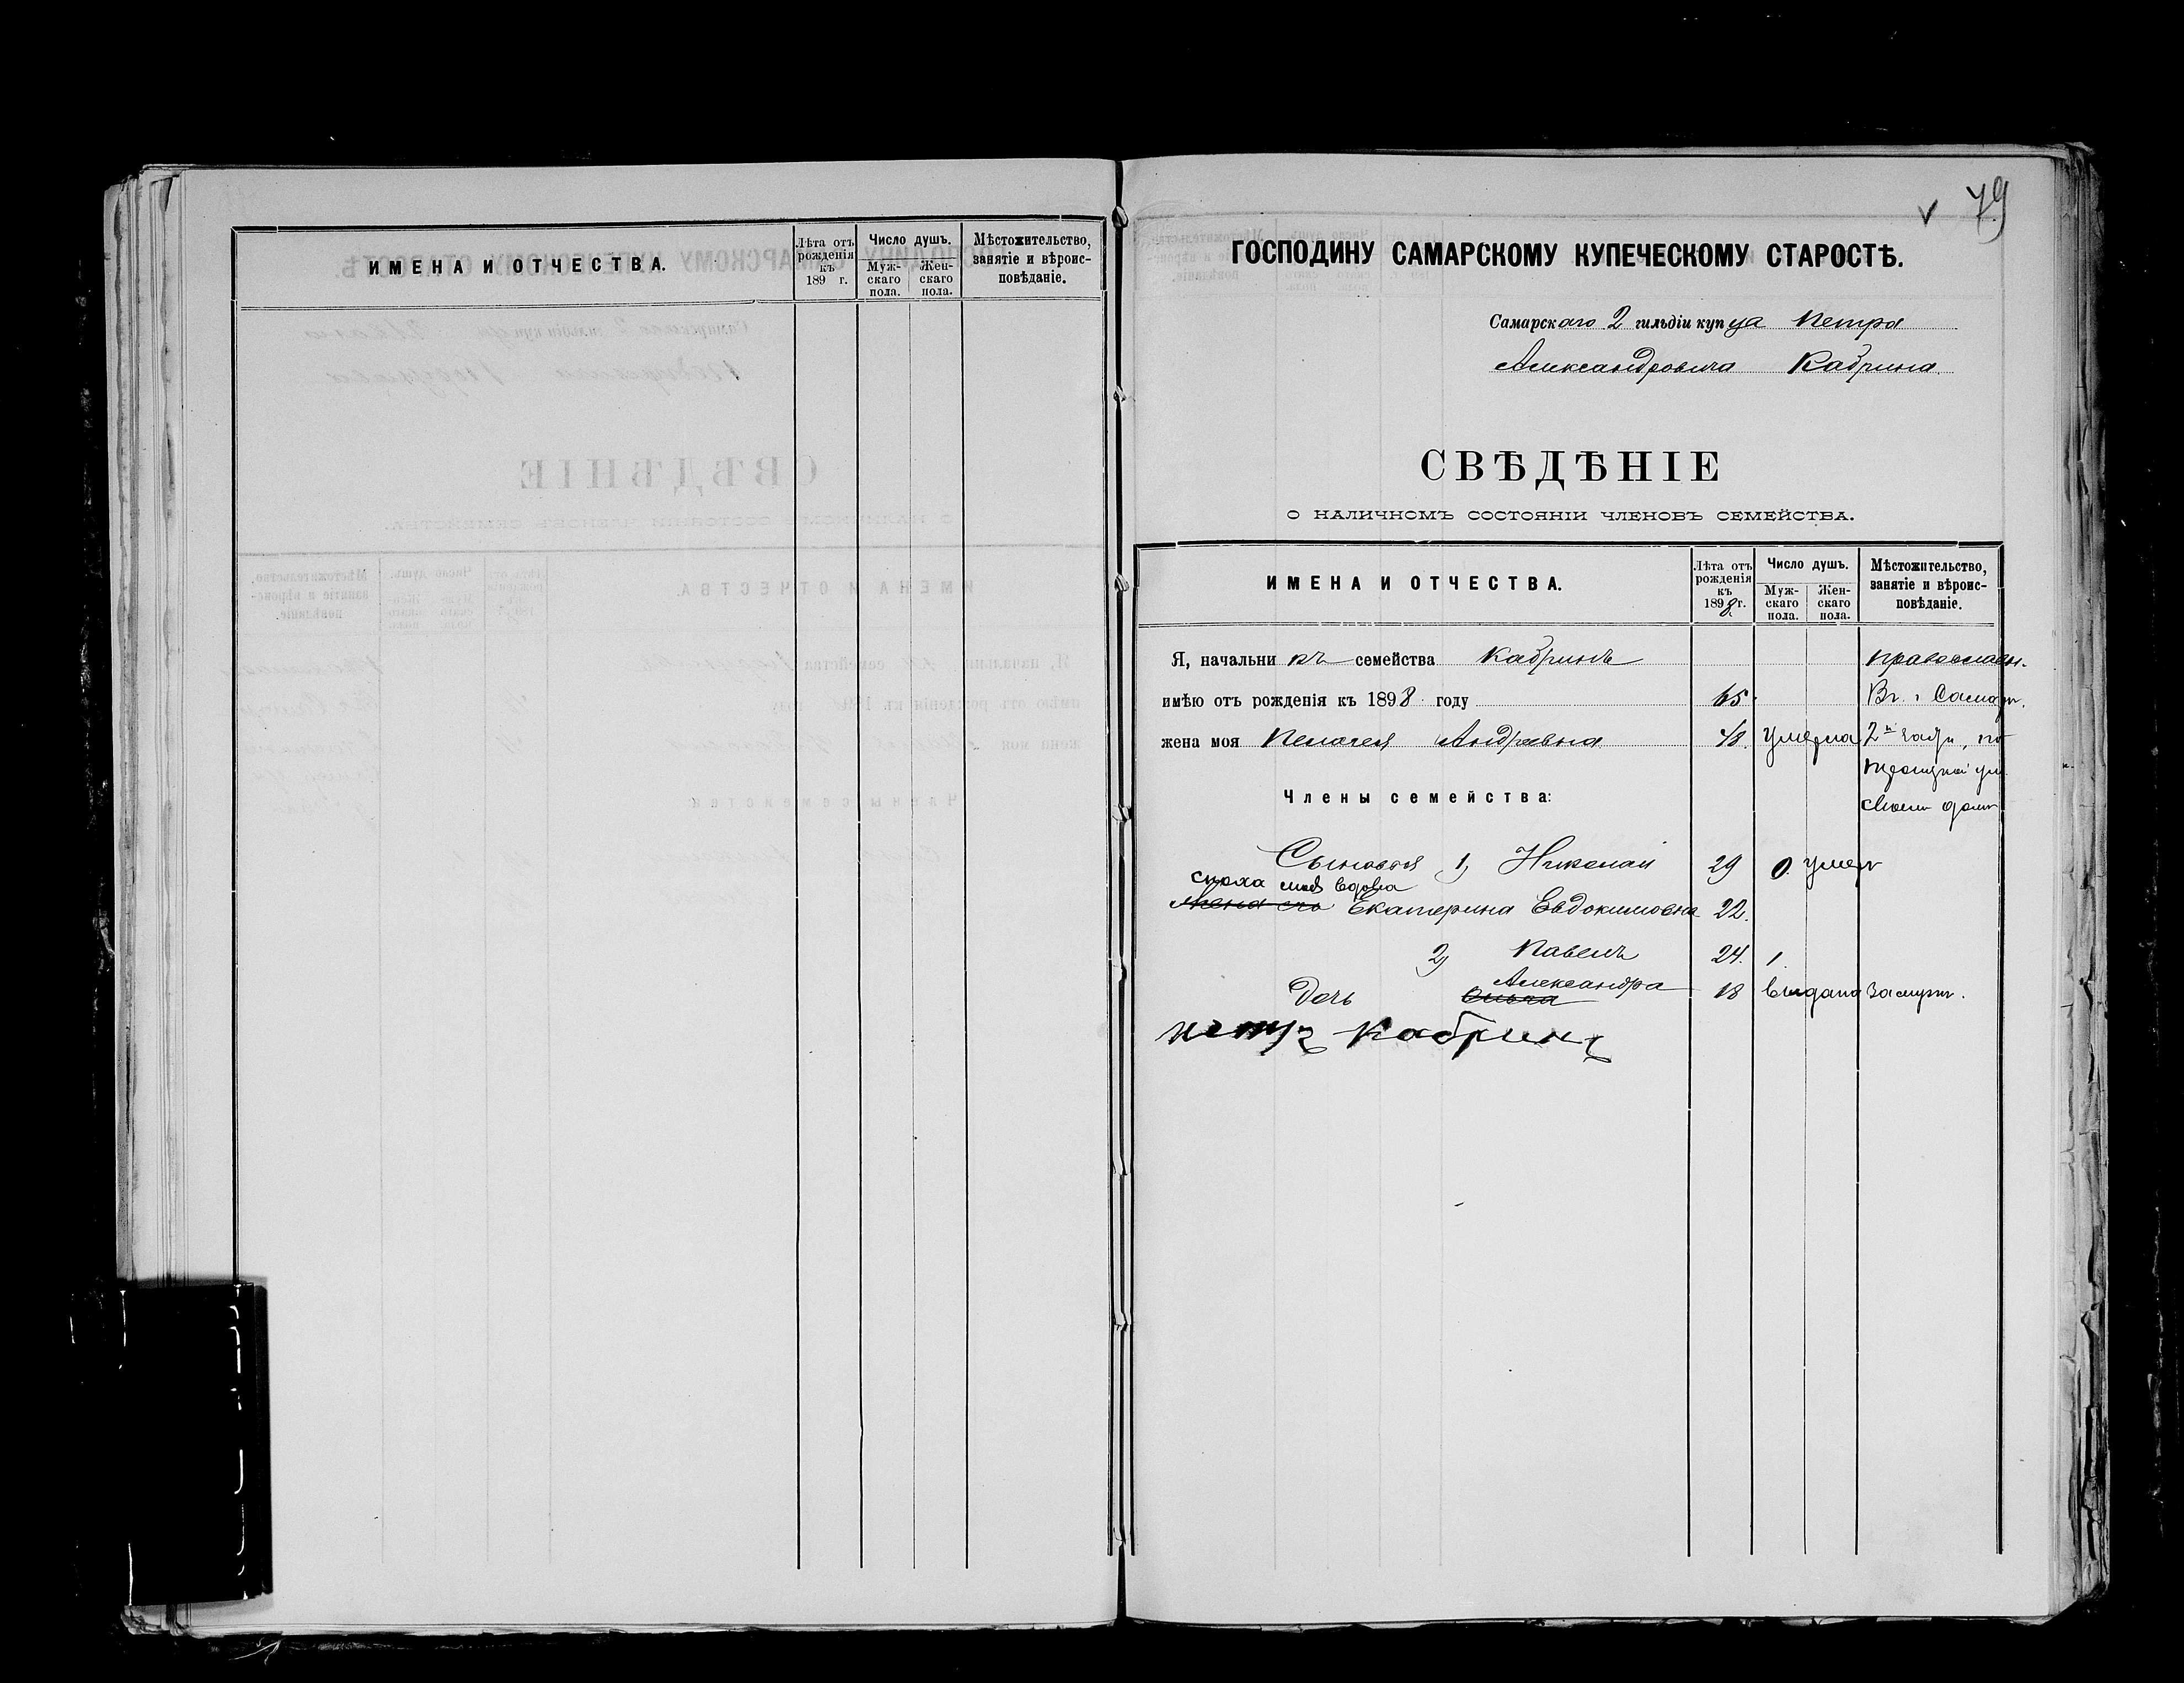 ИМЕНА И ОТЧЕСТВА.
Лѣта отъ рожденія къ 189 г.
Число душъ.
Мужскаго пола.
Женскаго пола.
Мѣстожительство, занятіе и вѣроисповѣданіе.
79
ГОСПОДИНУ САМАРСКОМУ КУПЕЧЕСКОМУ СТАРОСТѢ.
Самарскаго 2 гильдіи купца Петра
Александровича Кабрина.
СВѢДѢНІЕ
О НАЛИЧНОМЪ СОСТОЯНІИ ЧЛЕНОВЪ СЕМЕЙСТВА.
ИМЕНА И ОТЧЕСТВА.
Лѣта отъ рожденія къ 1898 г.
Число душъ.
Мужскаго пола.
Женскаго пола.
Мѣстожительство, занятіе и вѣроисповѣданіе.
Я, начальникъ семейства Кабринъ православн.
имѣю отъ рожденія къ 1898 году 65 Въ г. Самар.
жена моя Пелагея Андревна умерла 2й части, по
Троицкой ул.
своем домъ
Члены семейства:
Сыновья 1) Николай 29 0. умеръ
сноха моя вдова
жена его Екатерина Евдокимовна 22.
2) Павелъ 24. 1.
Александра
Дочь Ольга 18 выдана замужъ.
петръ кабринъ